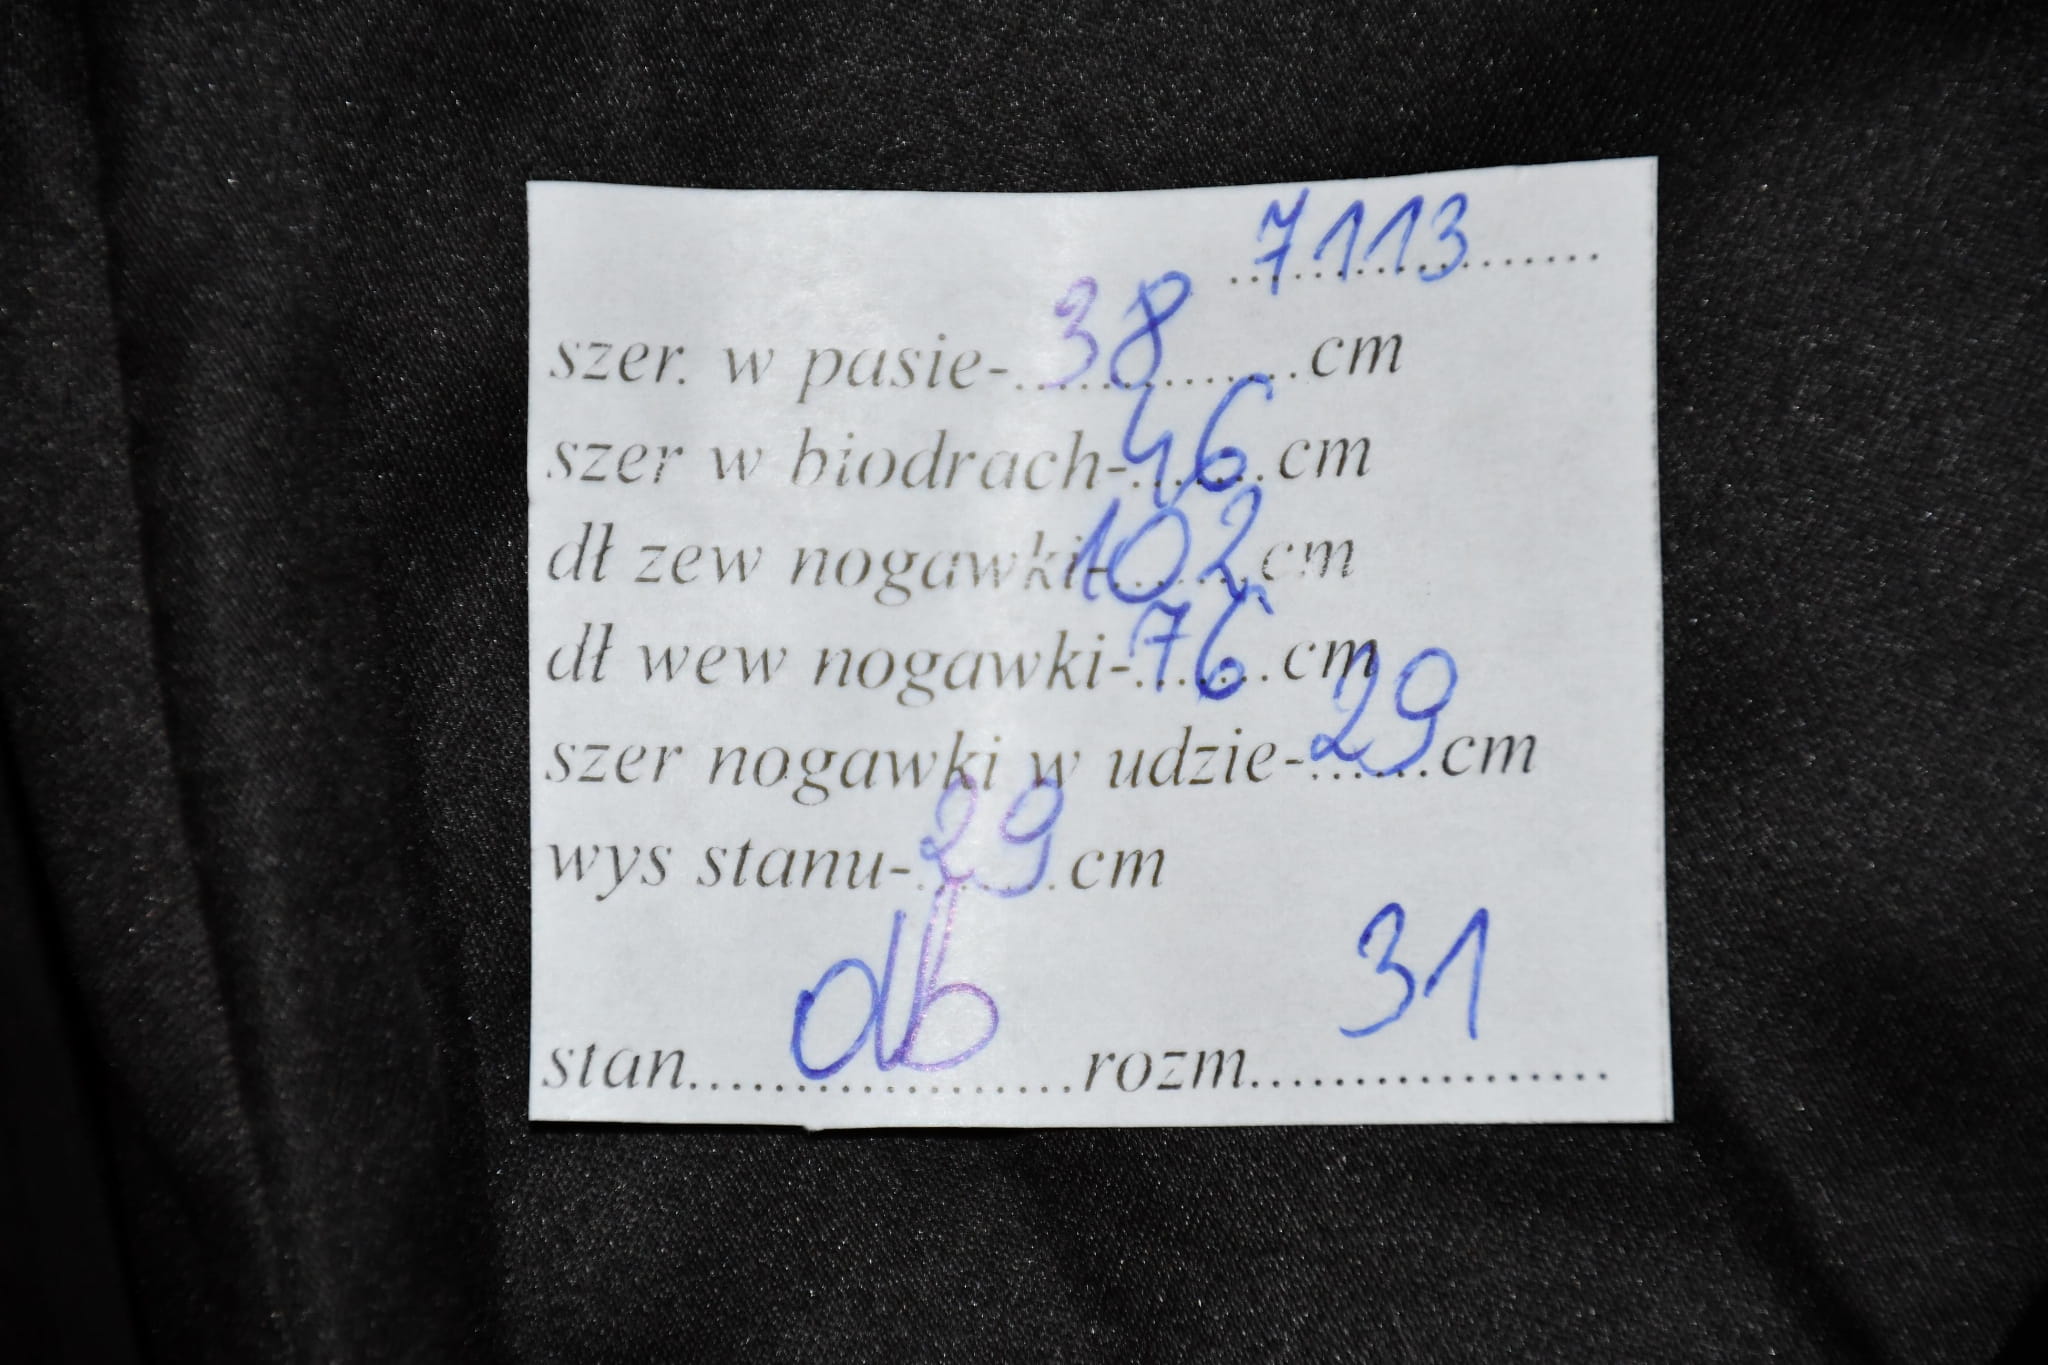 7113
szer. w pasie-38cm
szer w biodrach-46cm
dł zew nogawki-102cm
dł wew nogawki-76cm
szer nogawki w udzie-29cm
wys stanu-29cm
stan db rozm 31